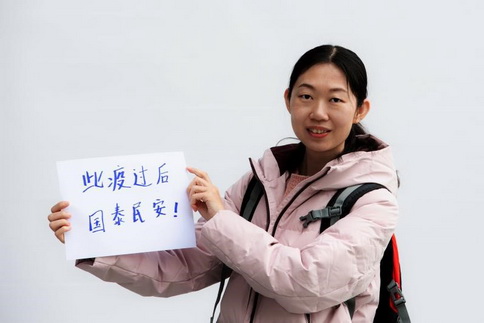 此疫过后
国泰民安!